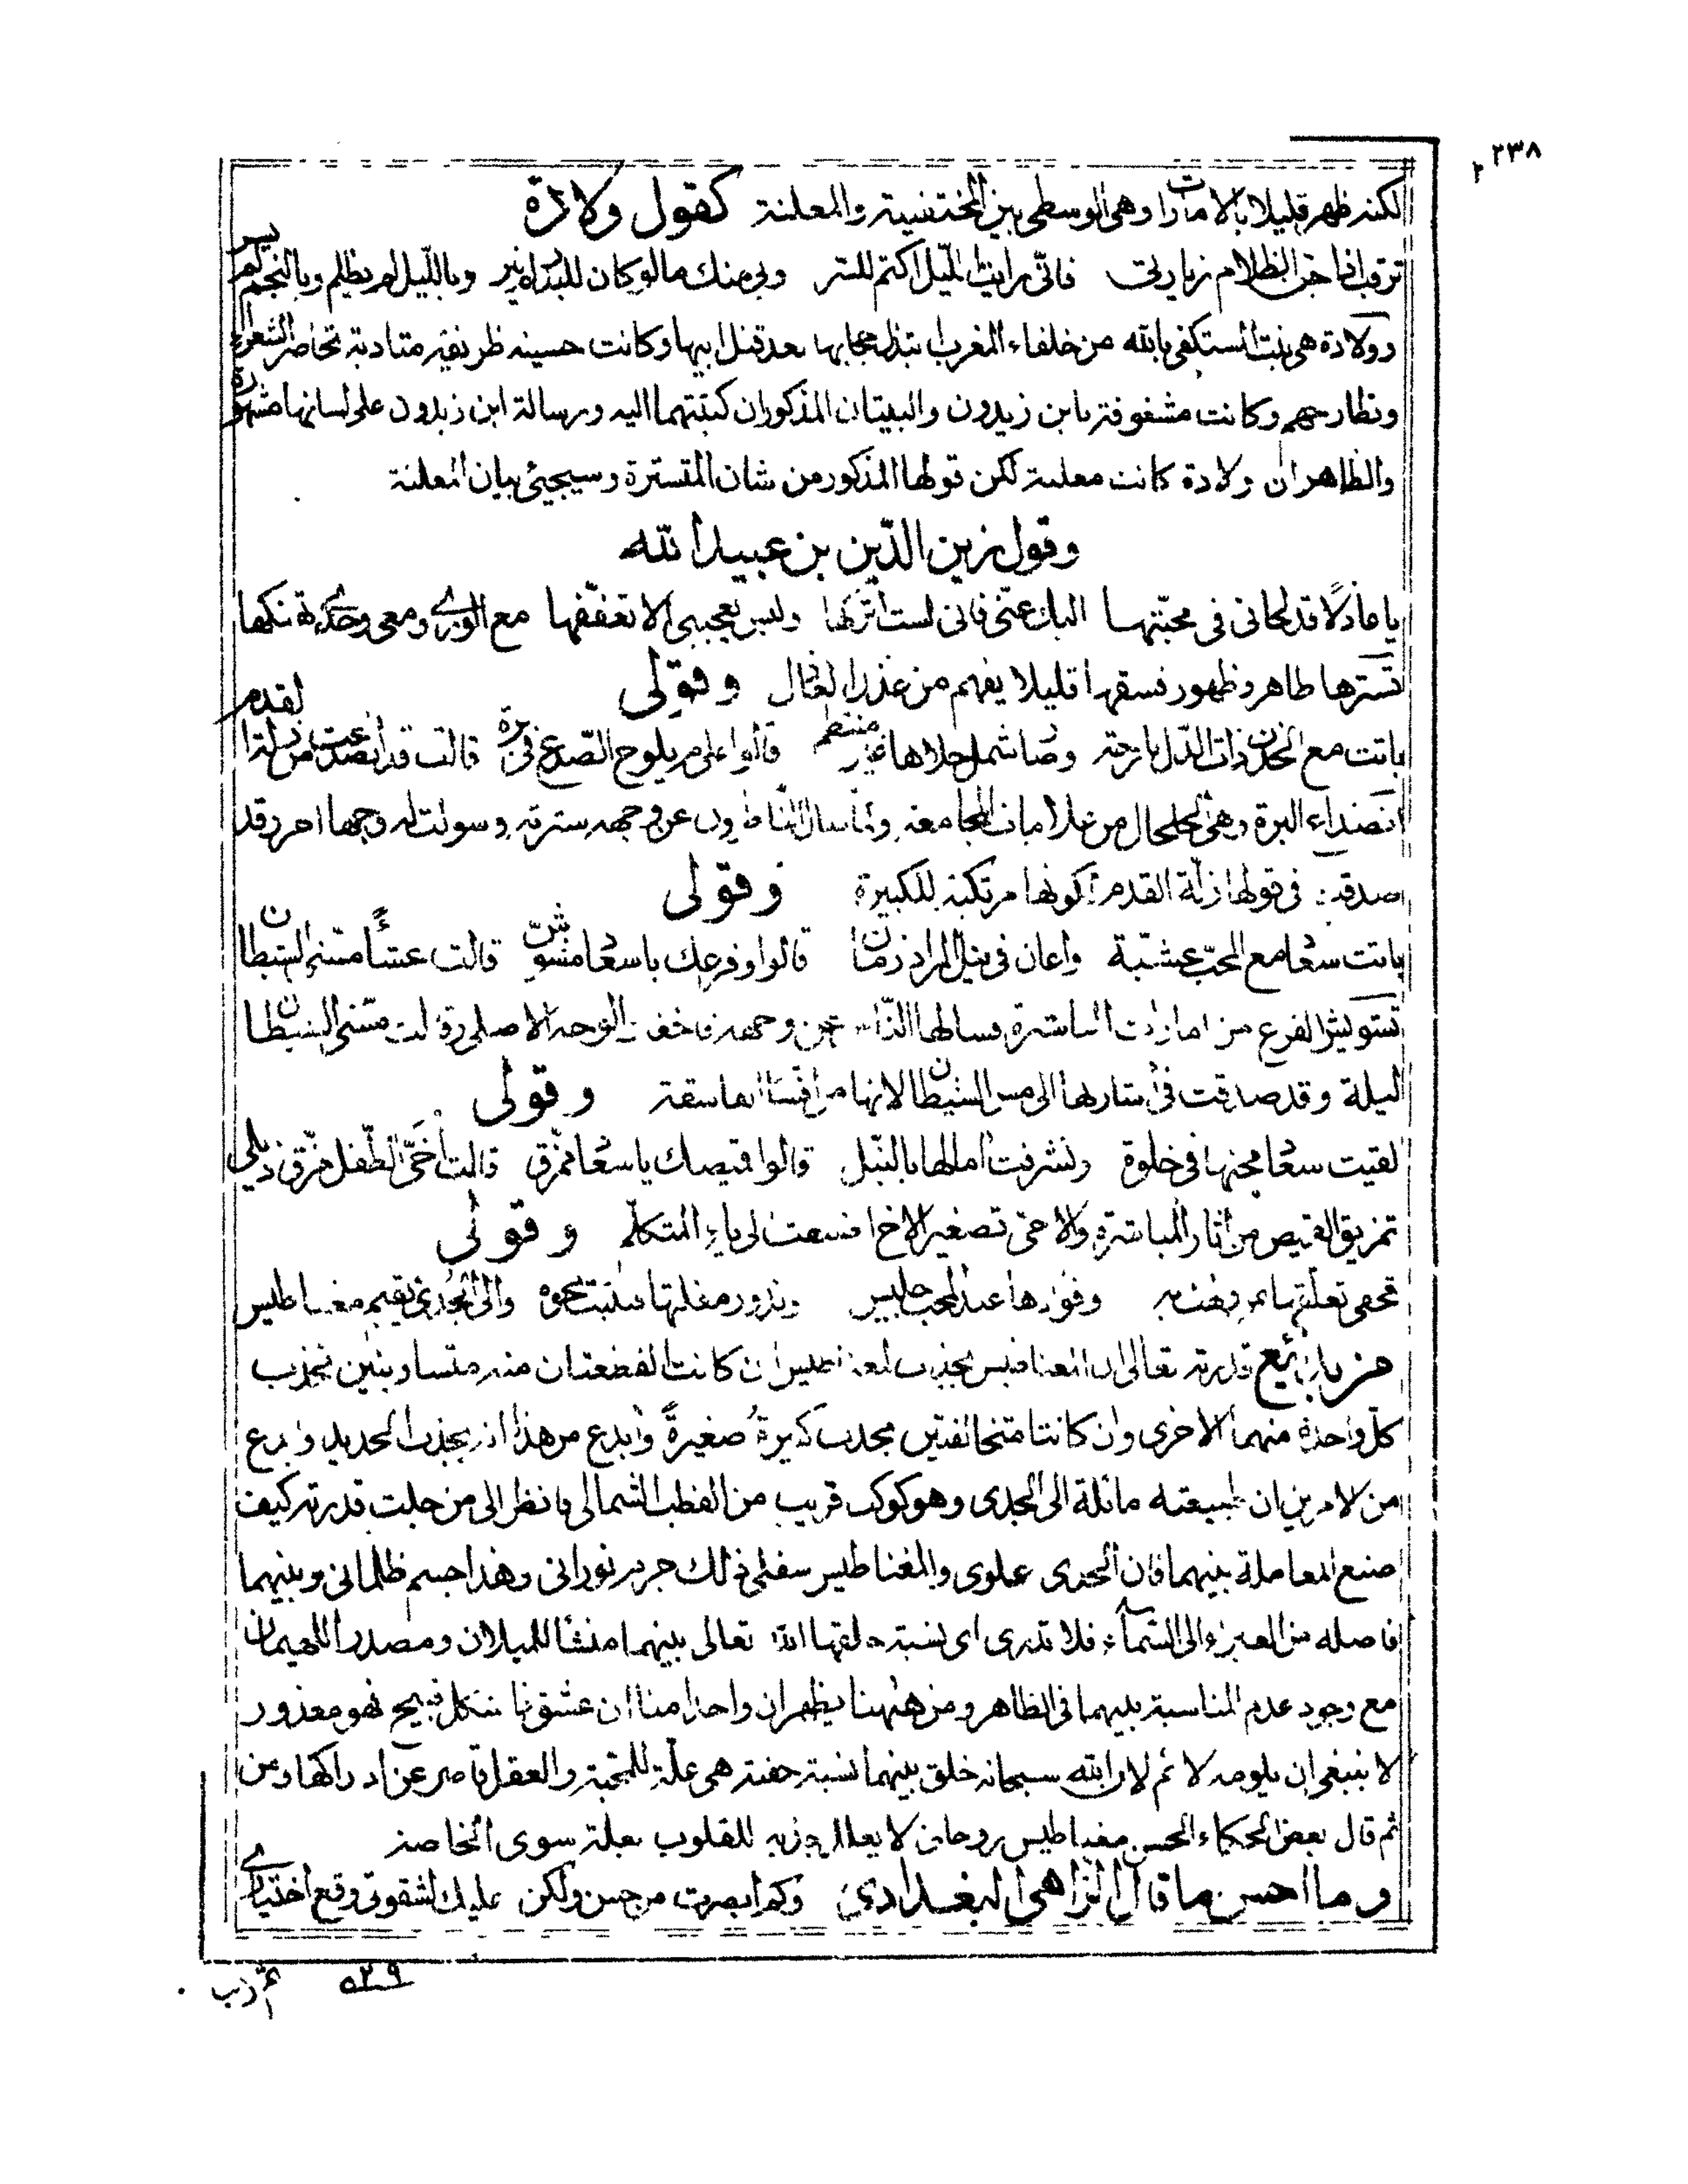 ٢٣٨
لكنه ظهر قليلا بالامارات وهى الوسطى بين المختفية والمعلنة كقول ولادة
ترقب اذا جن الظلام زيارتى فانى رايت الليل اكتم للستر وبى منك ما لو كان للبدر لم ينر وبالليل لم يظلم وبالنجم لم يسر
وولادة هى بنت المستكفى بالله من خلفاء المغرب ابتذل حجابها بعد قتل ابيها وكانت حسينة ظريفة متادبة تحاضر الشعراء
وتطارحهم وكانت مشغوفة بابن زيدون والبيتان المذكوران كتبتهما اليه ورسالة ابن زيدون على لسانها مشهورة
والظاهر ان ولادة كانت معلنة لكن قولها المذكور من شان المتسترة وسيجيئ بيان المعلنة
وقول زين الدّين بن عبيد الله
يا عاذلًا قد لحانى فى محبّتها اليك عنى فانى لست اتركها وليس يعجبنى الا تعفّفها مع الورى ومعى وحدى تهتكها
تسترها ظاهر وظهور فسقها قليلا يفهم من عذل العذال وقولى
باتت مع الخدن ذات الدل بارحة منتظم قالوا علام يلوح الصّدع فى برة قالت قد انصدعت من زلة لقدم
انصداع البرة وهى الخلخال من علامات المجامعة ولما سال الناظرون عن وجهه سترته وسولت له وجها اخر وقد
صدقت فى قولها زلة القدم لكونها مرتكبة للكبيرة وقولى
باتت سعاد مع المحبّ عشيّة واعان فى نيل المراد زمان قالوا وفرعك يا سعاد مشوّش قالت عشاءً مسّنى الشيطان
تشويش الفرع من امارات المباشرة فسالها عن وجهه فاخفت الوجه الاصلى وقالت مسنى الشيطان
ليلة وقد صدقت فى اشارتها الى مس الشيطان لانها من النساء الفاسقة وقولى
لقيت سعاد محبّها فى خلوة وتشرفت امالها بالنّيل قالوا قميصك يا سعاد ممزّق قالت اُخَىّ الطّفل مزّق ذيلى
تمزيق القميص من اثار المباشرة والاخىّ تصغير الاخ اضيفت الى ياء المتكلّم وقولى
تخفى تعلّقها بمن وفؤادها عند المحب جليس وتدور مقلتها نحوه والى الجدى يقيم مغناطيس
من بدائع قدرته تعالى ان المغناطيس يجذب المغناطيس ان كانت القطعتان منه متساويتين تجذب
كل واحدة منهما الاخرى وان كانتا متخالفتين تجذب كبيرةٌ صغيرةً وابدع من هذا انه يجذب الحديد وابدع
من الامرين ان طبيعته مائلة الى الجدى وهو كوكب قريب من القطب الشمالى فانظر الى من جلت قدرته كيف
صنع المعاملة بينهما فان الجدى علوى والمغناطيس سفلى ذلك جرم نورانى وهذا جسم ظلمانى وبينهما
فاصلة من الغبراء الى السماء فلا تدرى اى نسبة خلقها الله تعالى بينهما منشأ للميلان ومصدرا للهيمان
مع وجود عدم المناسبة بينهما فى الظاهر ومن ههنا يظهر ان واحدا منا ان عشق ذا شكل قبيح فهو معذور
لا ينبغى ان يلومه لائم لان الله سبحانه خلق بينهما نسبة خفية هى علّة للمحبة والعقل قاصر عن ادراكها ومن
ثم قال بعض الحكماء الحسن مغناطيس روحانى لا يعلل جذبه للقلوب بعلة سوى الخاصة
وما احسن ما قال الزاهى البغدادى وكم ابصرت من حسن ولكن عليك لشقوتى وقع اختيارى
٥٢٩